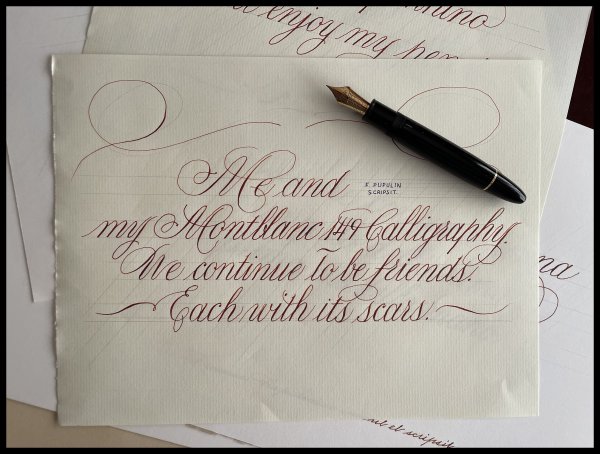 enjoy my pen
Me and
F. PUPULIN
SCRIPSIT.
my Montblanc 149 Calligraphy.
We continue to be friends.
Each with its scars.
et scripsit